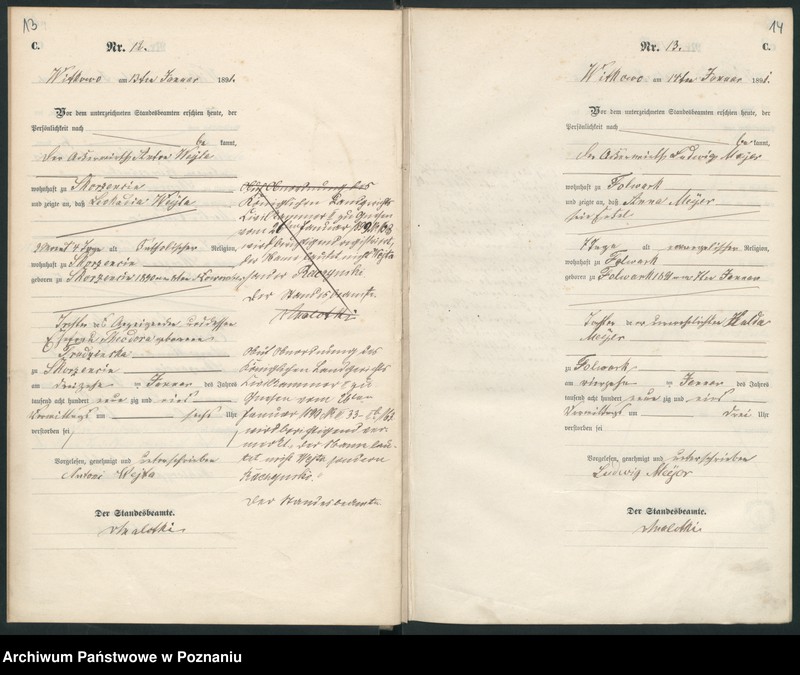 13
C. Nr. 12.
Witkowo am 13ten Januar 1891.
Vor dem unterzeichneten Standesbeamten erschien heute, der
Persönlichkeit nach
be kannt,
der Ackerwirth Anton Wojta
wohnhaft zu Skorzencin
und zeigte an, daß Leokadia Wojta
alt katholischer Religion,
wohnhaft zu Skorzencin
geboren zu Skorzencin 1890
Tochter des Anzeigenden und dessen
Ehefrau Theodora geborene
zu Skorzencin
am dreizehn ten Januar des Jahres
tausend acht hundert neun zig und eins
Vormittags um sechs Uhr
verstorben sei
Vorgelesen, genehmigt und unterschrieben
Antoni Wojta
Der Standesbeamte.
Auf Anordnung des
Königlichen Landgerichts
Civilkammer zu Gnesen
vom Januar
wird berichtigend
der Name lautet nicht Wojta
sondern Kaczynski
Der Standesbeamte.
Auf Anordnung des
Königlichen Landgerichts
Civilkammer zu
Gnesen vom
Januar
wird berichtigend ver-
merkt, der Name lau-
tet nicht Wojta sondern
Kaczynski.
Der Standesbeamte.
14
Nr. 13. C.
Witkowo am 14ten Januar 1891.
Vor dem unterzeichneten Standesbeamten erschien heute, der
Persönlichkeit nach
be kannt,
der Ackerwirth Ludwig Meyer
wohnhaft zu Folwark
und zeigte an, daß Anna Meyer
7 Tage alt evangelischer Religion,
wohnhaft zu Folwark
geboren zu Folwark 1891 am 7ten Januar
Tochter der unverehelichten Hulda
Meyer
zu Folwark
am vierzehn ten Januar des Jahres
tausend acht hundert neun zig und eins
Vormittags um drei Uhr
verstorben sei
Vorgelesen, genehmigt und unterschrieben
Ludwig Meyer
Der Standesbeamte.
Archiwum Państwowe w Poznaniu